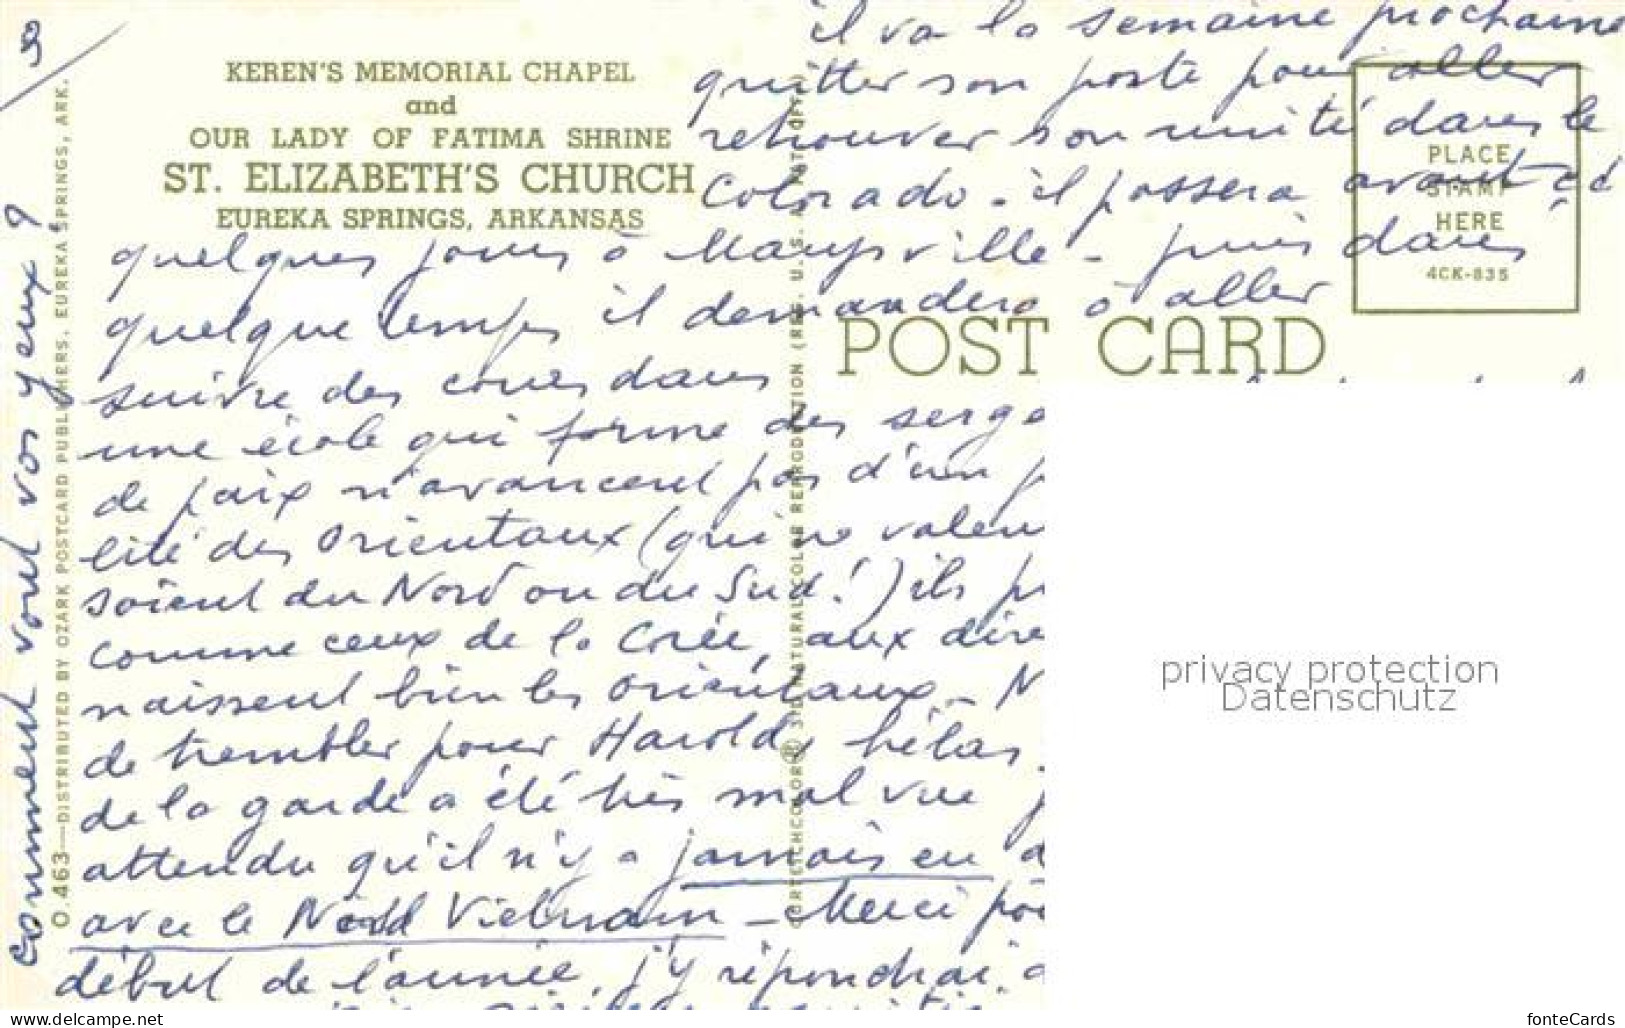 il va la semaine prochaine
quitter son poste pour aller
retrouver son unité dans le
Colorado - il passera avant
quelques jours à Marysville - puis dans
quelque temps il demandera à aller
suivre des cours dans
une école qui forme des serge
de paix n'avancent pas d'un
lité des Orientaux (qui ne valen
soient du Nord ou du Sud!) ils
comme ceux de la Corée, aux dire
naissent bien les orientaux - N
de trembler pour Harold, hélas
de la garde a été très mal vue
attendu qu'il n'y a jamais eu
avec le Nord Vietnam - Merci
début de l'année, j'y répondrai
comment vont vos yeux ?
3
KEREN'S MEMORIAL CHAPEL
and
OUR LADY OF FATIMA SHRINE
ST. ELIZABETH'S CHURCH
EUREKA SPRINGS, ARKANSAS
O.463—DISTRIBUTED BY OZARK POSTCARD PUBLISHERS, EUREKA SPRINGS, ARK.
CURTEICHCOLOR® 3-D NATURAL COLOR REPRODUCTION (REG. U.S. PAT. OFF.)
PLACE
STAMP
HERE
4CK-835
POST CARD
privacy protection
Datenschutz
www.delcampe.net
fonteCards